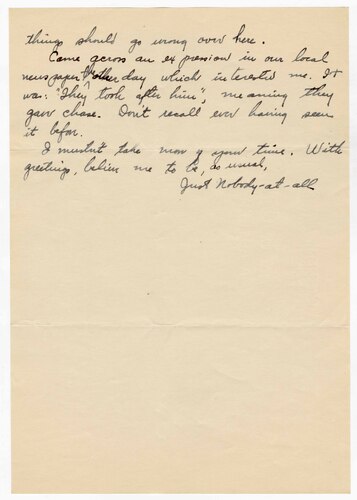 things should go wrong over here.
Came across an expression in our local
newspaper the other day which interested me. It
was: "They took after him", meaning they
gave chase. Don't recall ever having seen
it before.
I mustn't take more of your time. With
greetings, believe me to be, as usual,
Just Nobody-at-all